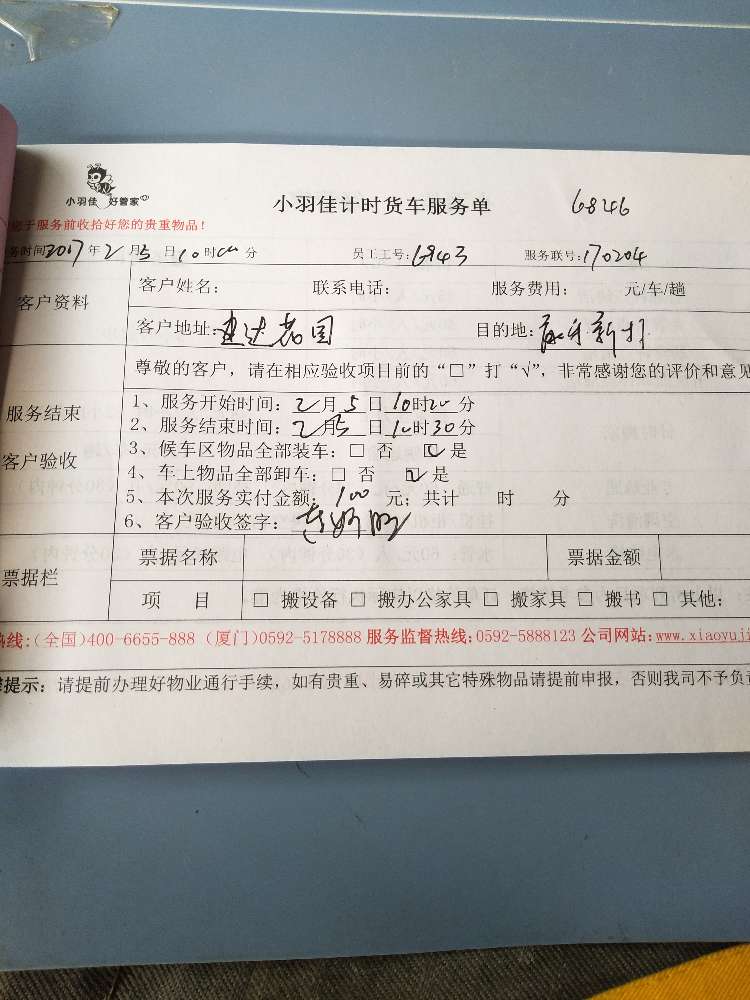 小羽佳 好管家
小羽佳计时货车服务单 6846
于服务前收拾好您的贵重物品!
务时间2017年2月5日10时00分 员工工号:6943 服务联号:170204
客户资料 客户姓名: 联系电话: 服务费用: 元/车/趟
客户地址:建达花园 目的地:
尊敬的客户,请在相应验收项目前的“□”打“√”,非常感谢您的评价和意见
服务结束
客户验收
1、服务开始时间:2月5日10时00分
2、服务结束时间:2月5日10时30分
3、候车区物品全部装车:□ 否 ☑ 是
4、车上物品全部卸车:□ 否 ☑ 是
5、本次服务实付金额:100元;共计 时 分
6、客户验收签字:
票据栏 票据名称 票据金额
项 目 □ 搬设备 □ 搬办公家具 □ 搬家具 □ 搬书 □ 其他:
热线:(全国)400-6655-888 (厦门)0592-5178888 服务监督热线:0592-5888123 公司网站:www.xiaoyuji
提示:请提前办理好物业通行手续,如有贵重、易碎或其它特殊物品请提前申报,否则我司不予负责